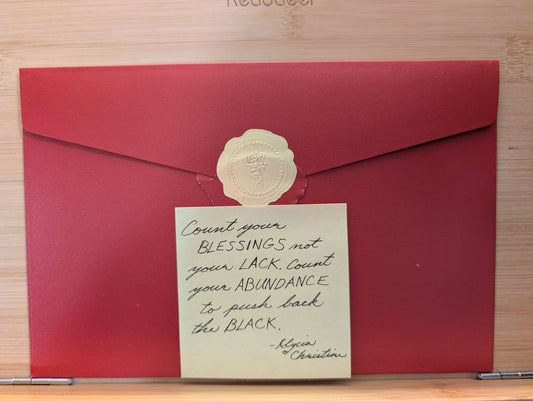 Reodoeer
Count your
BLESSINGS not
your LACK. Count
your ABUNDANCE
to push back
the BLACK.
-Alycia
Christine